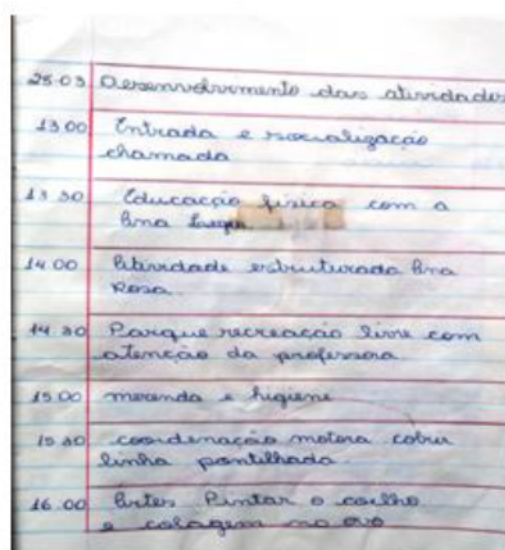 25.03 Desenvolvimento das atividades
13.00 Entrada e socialização
chamada
13 30 Educação física com a
Ana
14.00 Atividade estruturada Ana
Rosa.
14 30 Parque recreação livre com
atenção da professora
15.00 merenda e higiene
15 30 coordenação motora cobrir
linha pontilhada.
16.00 Artes Pintar o coelho
e colagem no ovo